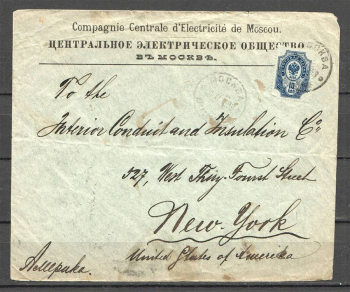 Compagnie Centrale d'Electricité de Moscou.
ЦЕНТРАЛЬНОЕ ЭЛЕКТРИЧЕСКОЕ ОБЩЕСТВО
ВЪ МОСКВѢ.
МОСКВА
To the
Interior Conduit and Insulation Co
527, West Thery-Fourst Street
New-York
United States of Amerika
Америка.